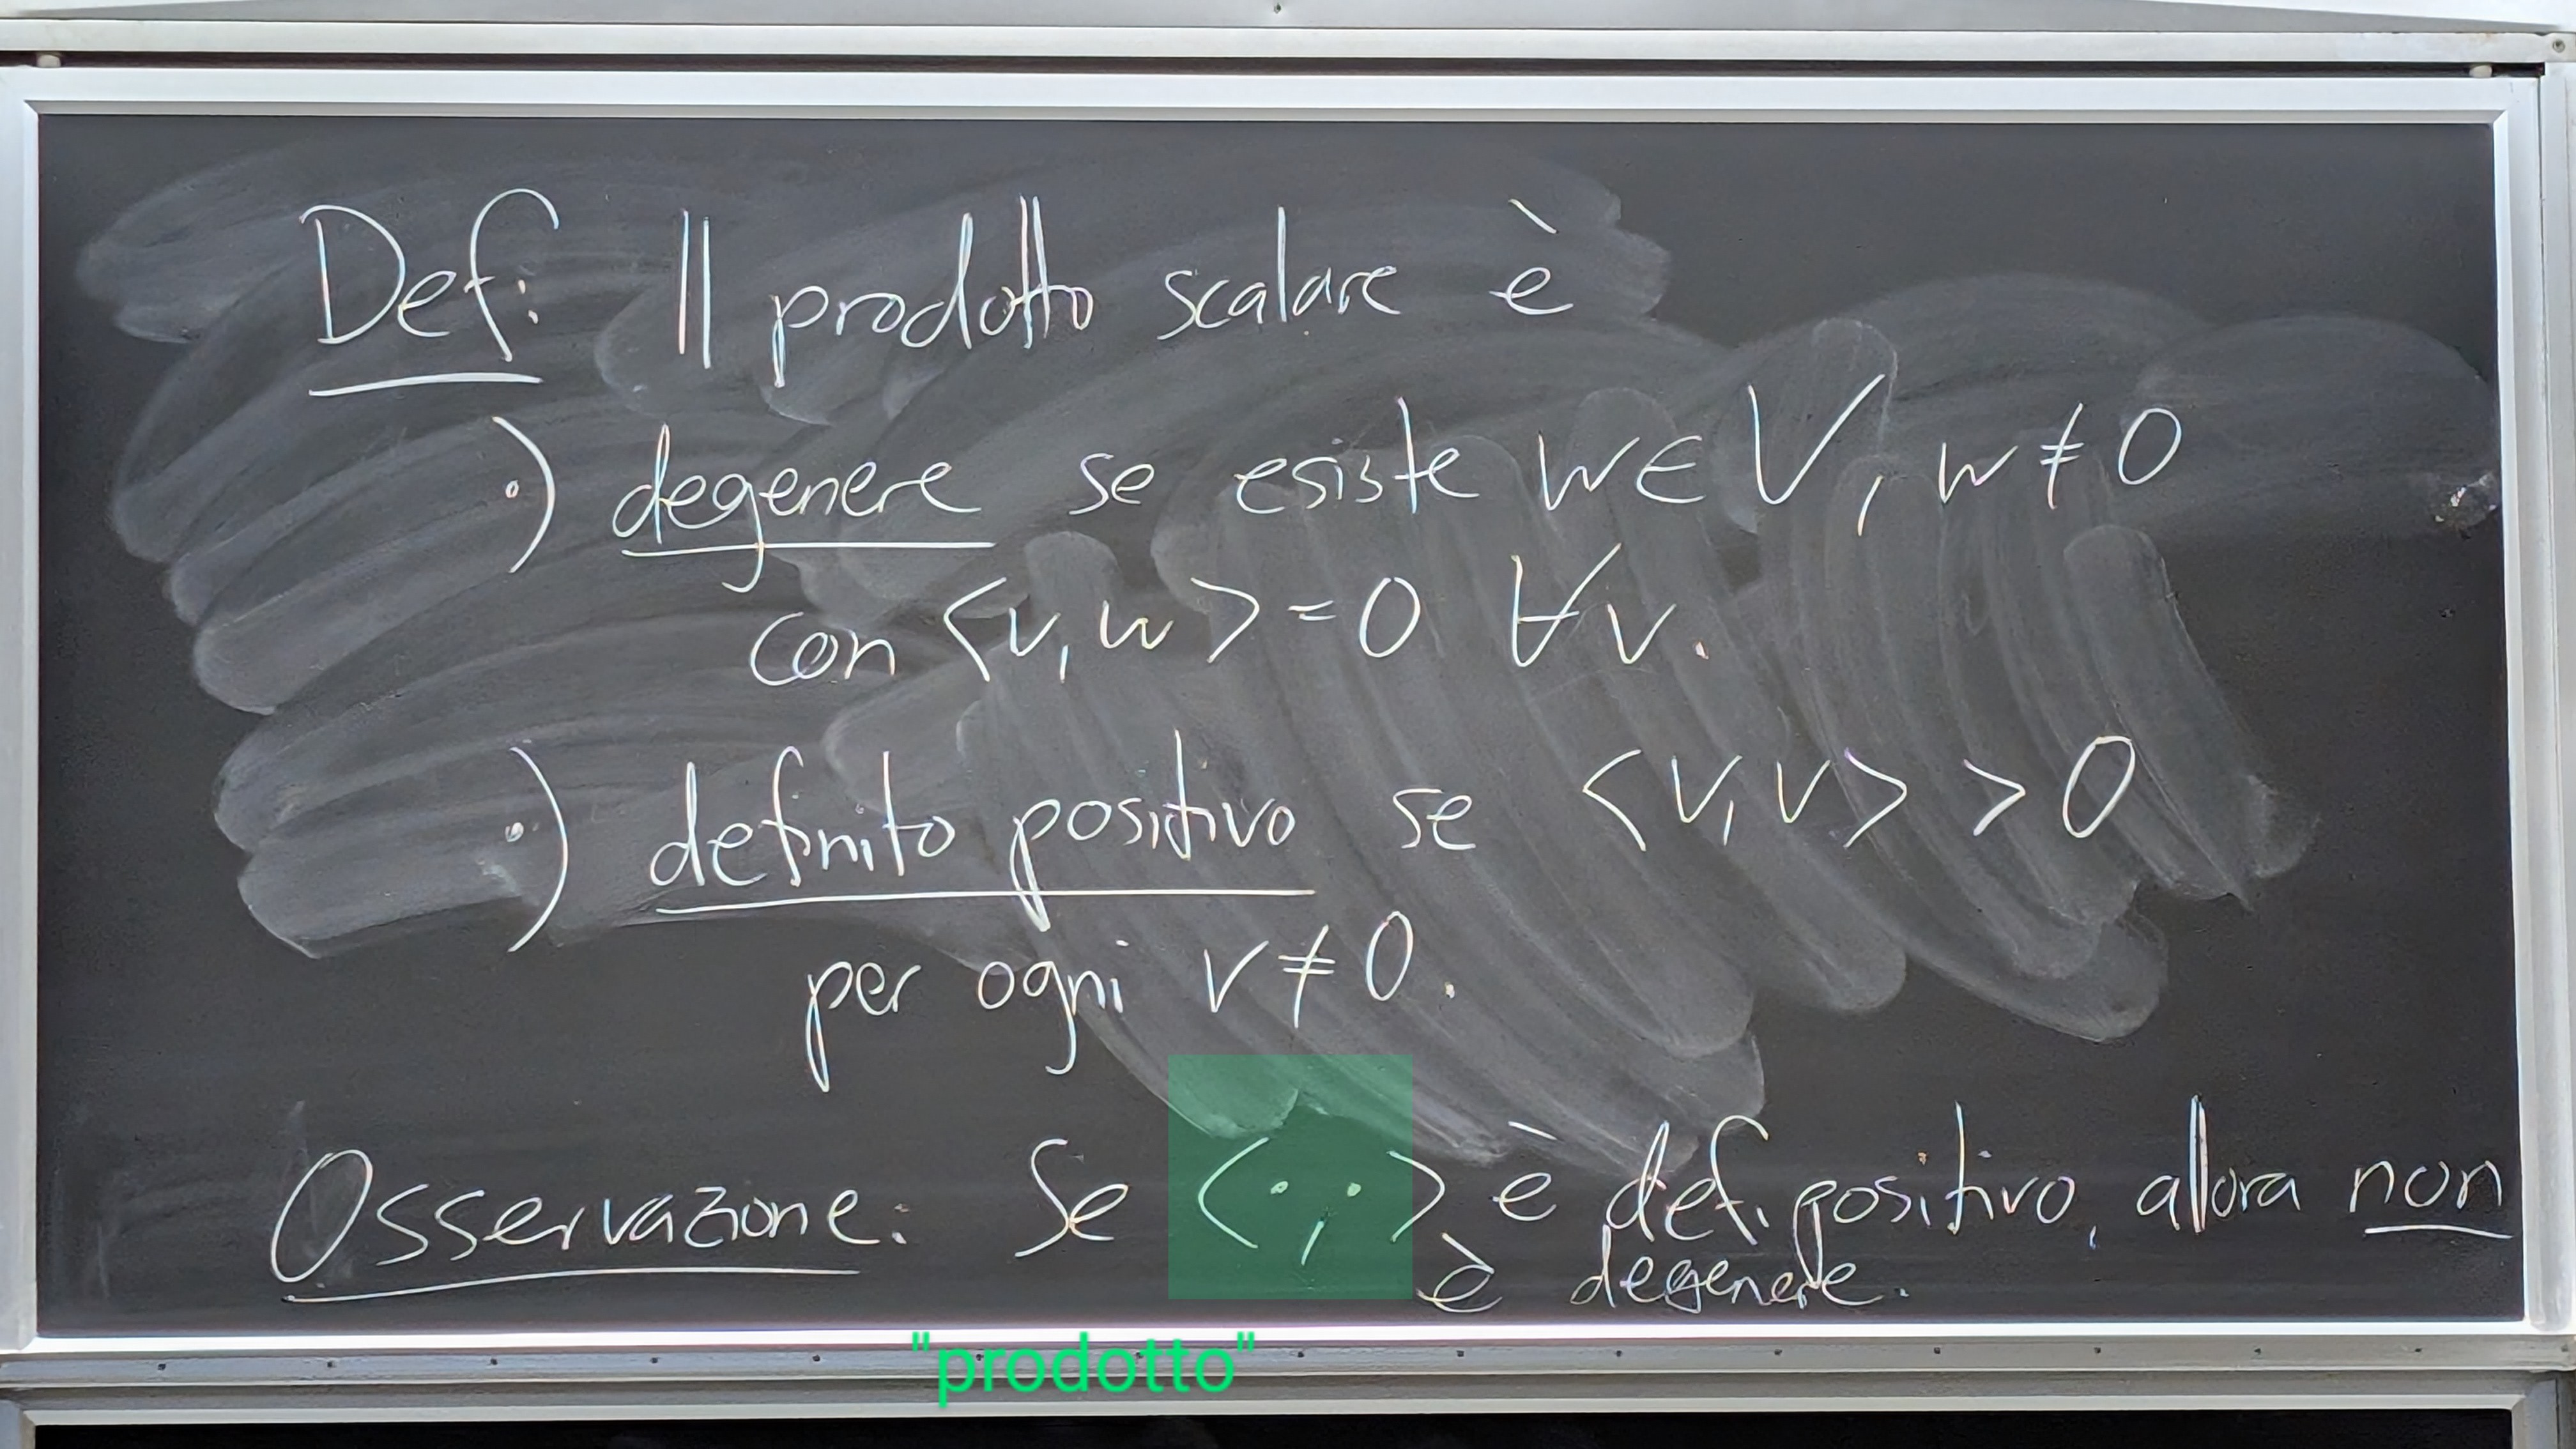 Def: Il prodotto scalare è
·) degenere se esiste w ∈ V, w ≠ 0
con <v, w> = 0 ∀ v.
·) definito positivo se <v, v> > 0
per ogni v ≠ 0.
Osservazione: Se <·,·> è def. positivo, allora non
è degenere.
"prodotto"